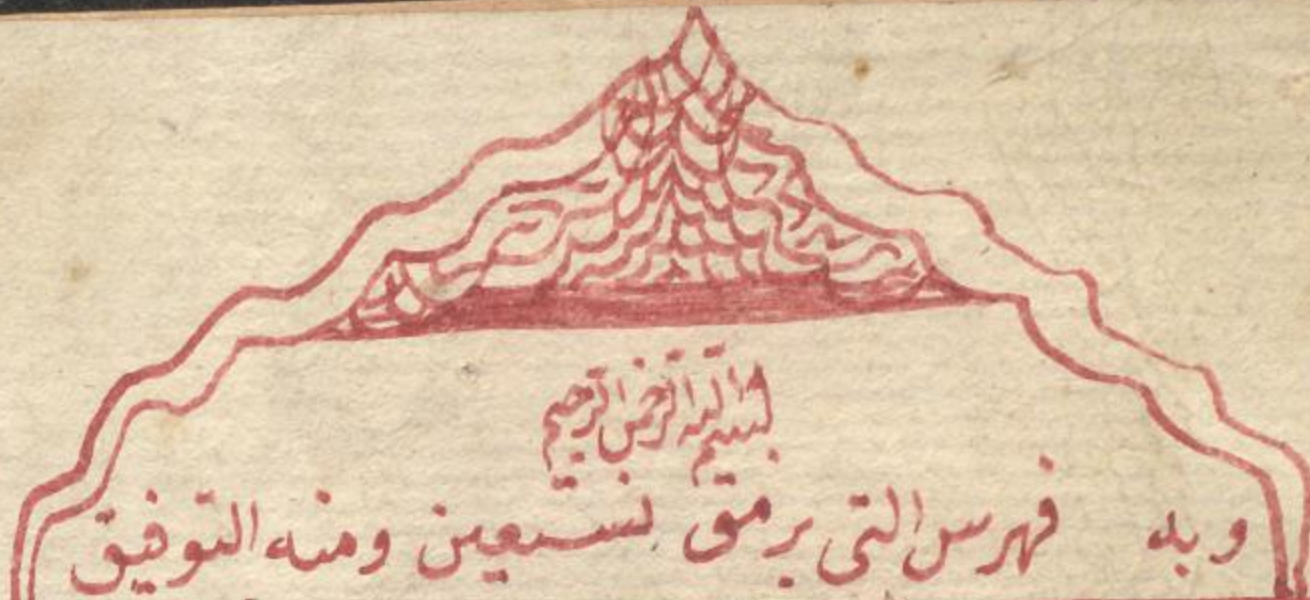 بسم الله الرحمن الرحيم
وبه فهرس التى برمق نستعين ومنه التوفيق